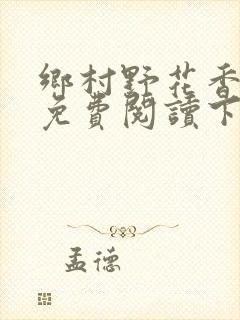 鄉村野花香
免費閱讀下
孟德